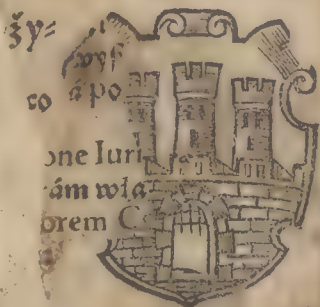 ży=
wyſ
co á po
one Iuri
ám wła
orem C